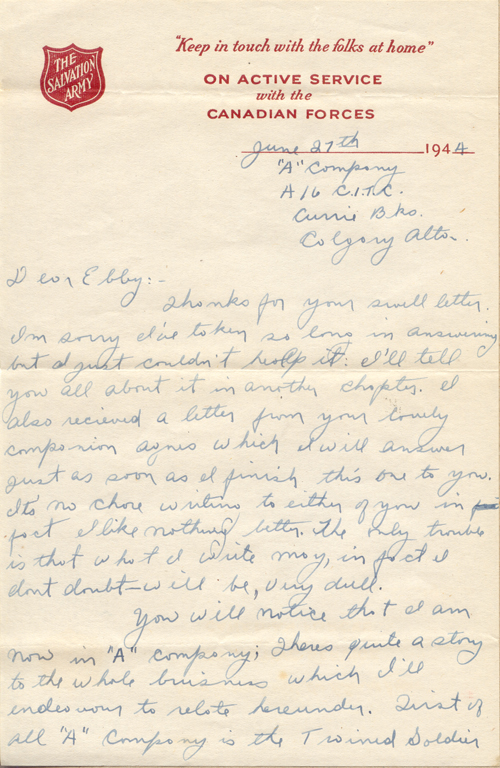 "Keep in touch with the folks at home"
THE
SALVATION
ARMY
ON ACTIVE SERVICE
with the
CANADIAN FORCES
June 27th 1944
"A" Company
A16 C.I.T.C.
Currie Bks.
Calgary Alta.
Dear Ebby:-
Thanks for your swell letter.
I'm sorry I've taken so long in answering
but I just couldn't help it. I'll tell
you all about it in another chapter. I
also recieved a letter from your lovely
companion Agnes which I will answer
just as soon as I finish this one to you.
It's no chore writing to either of you in
fact I like nothing better. The only trouble
is that what I write may, in fact I
dont doubt - will be, very dull.
You will notice that I am
now in "A" company; Theres quite a story
to the whole buisness which I'll
endeavour to relate hereunder. First of
all "A" Company is the Trained Soldier